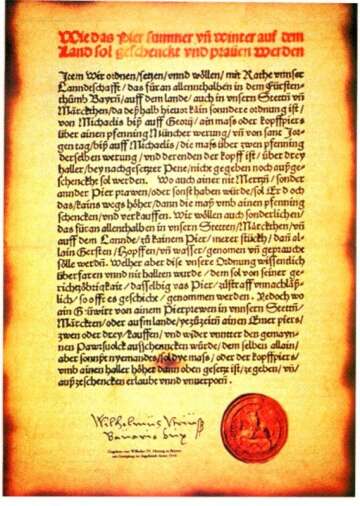 Wie das Pier summer vn̄ winter auf dem
Land sol geschenckt vnd prauen werden
Item Wir ordnen / setzen / vnnd wöllen / mit Rathe vnnser
Lanndtschafft / das für an allennthalben in dem Fürsten-
thūmb Bayrn / auff dem lande / auch in vnsern Stettn̄ vn̄
Märckthen / da deßhalb hieuor kain sonndere ordnung ist /
von Michaelis biß auff Georij / ain mass oder kopffpiers
über ainen pfenning Müncher werung / vn̄ von sant Jor-
gentag / biß auff Michaelis / die mass über zwen pfenning
derselben werung / vnd derenden der kopff ist / über drey
haller / bey nachgesetzter Pene / nicht gegeben noch außge-
schenckht sol werden. Wo auch ainer nit Mertzn̄ / sonder
annder Pier prawen / oder sonst haben würde / sol Er doch
das / kains wegs höher / dann die maß vmb ainen pfenning
schencken / vnd verkauffen. Wir wöllen auch sonderlichen /
das für an allenthalben in vnsern Stetten / Märckthen / vn̄
auff dem Lannde / zū kainem Pier / merer stückh / dan̄ al-
lain Gersten / Hopffen / vn̄ wasser / genomen vn̄ gepraucht
sölle werdn̄. Welher aber dise vnsere Ordnung wissentlich
überfaren vnnd nit hallten wurde / dem sol von seiner ge-
richtzöbrigkait / dasselbig vas Pier / zūstraff vnnachläß-
lich / so offt es geschicht / genommen werden. Yedoch wo
ain Gūwirt von ainem Pierprewen in vnnsern Stettn̄
Märckten / oder aufm lande / yezūzeitn̄ ainen Emer piers /
zwen oder drey / kauffen / vnd wider vnntter den gemayn-
nen Pawrsuolck außschencken würde / dem selben allain /
aber sonnst nyemandes / sol dye mass / oder der kopffpiers /
vmb ainen haller höher dann oben gesetzt ist / ze geben / vn̄
außzeschencken erlaubt vnnd vnuerpotn̄.